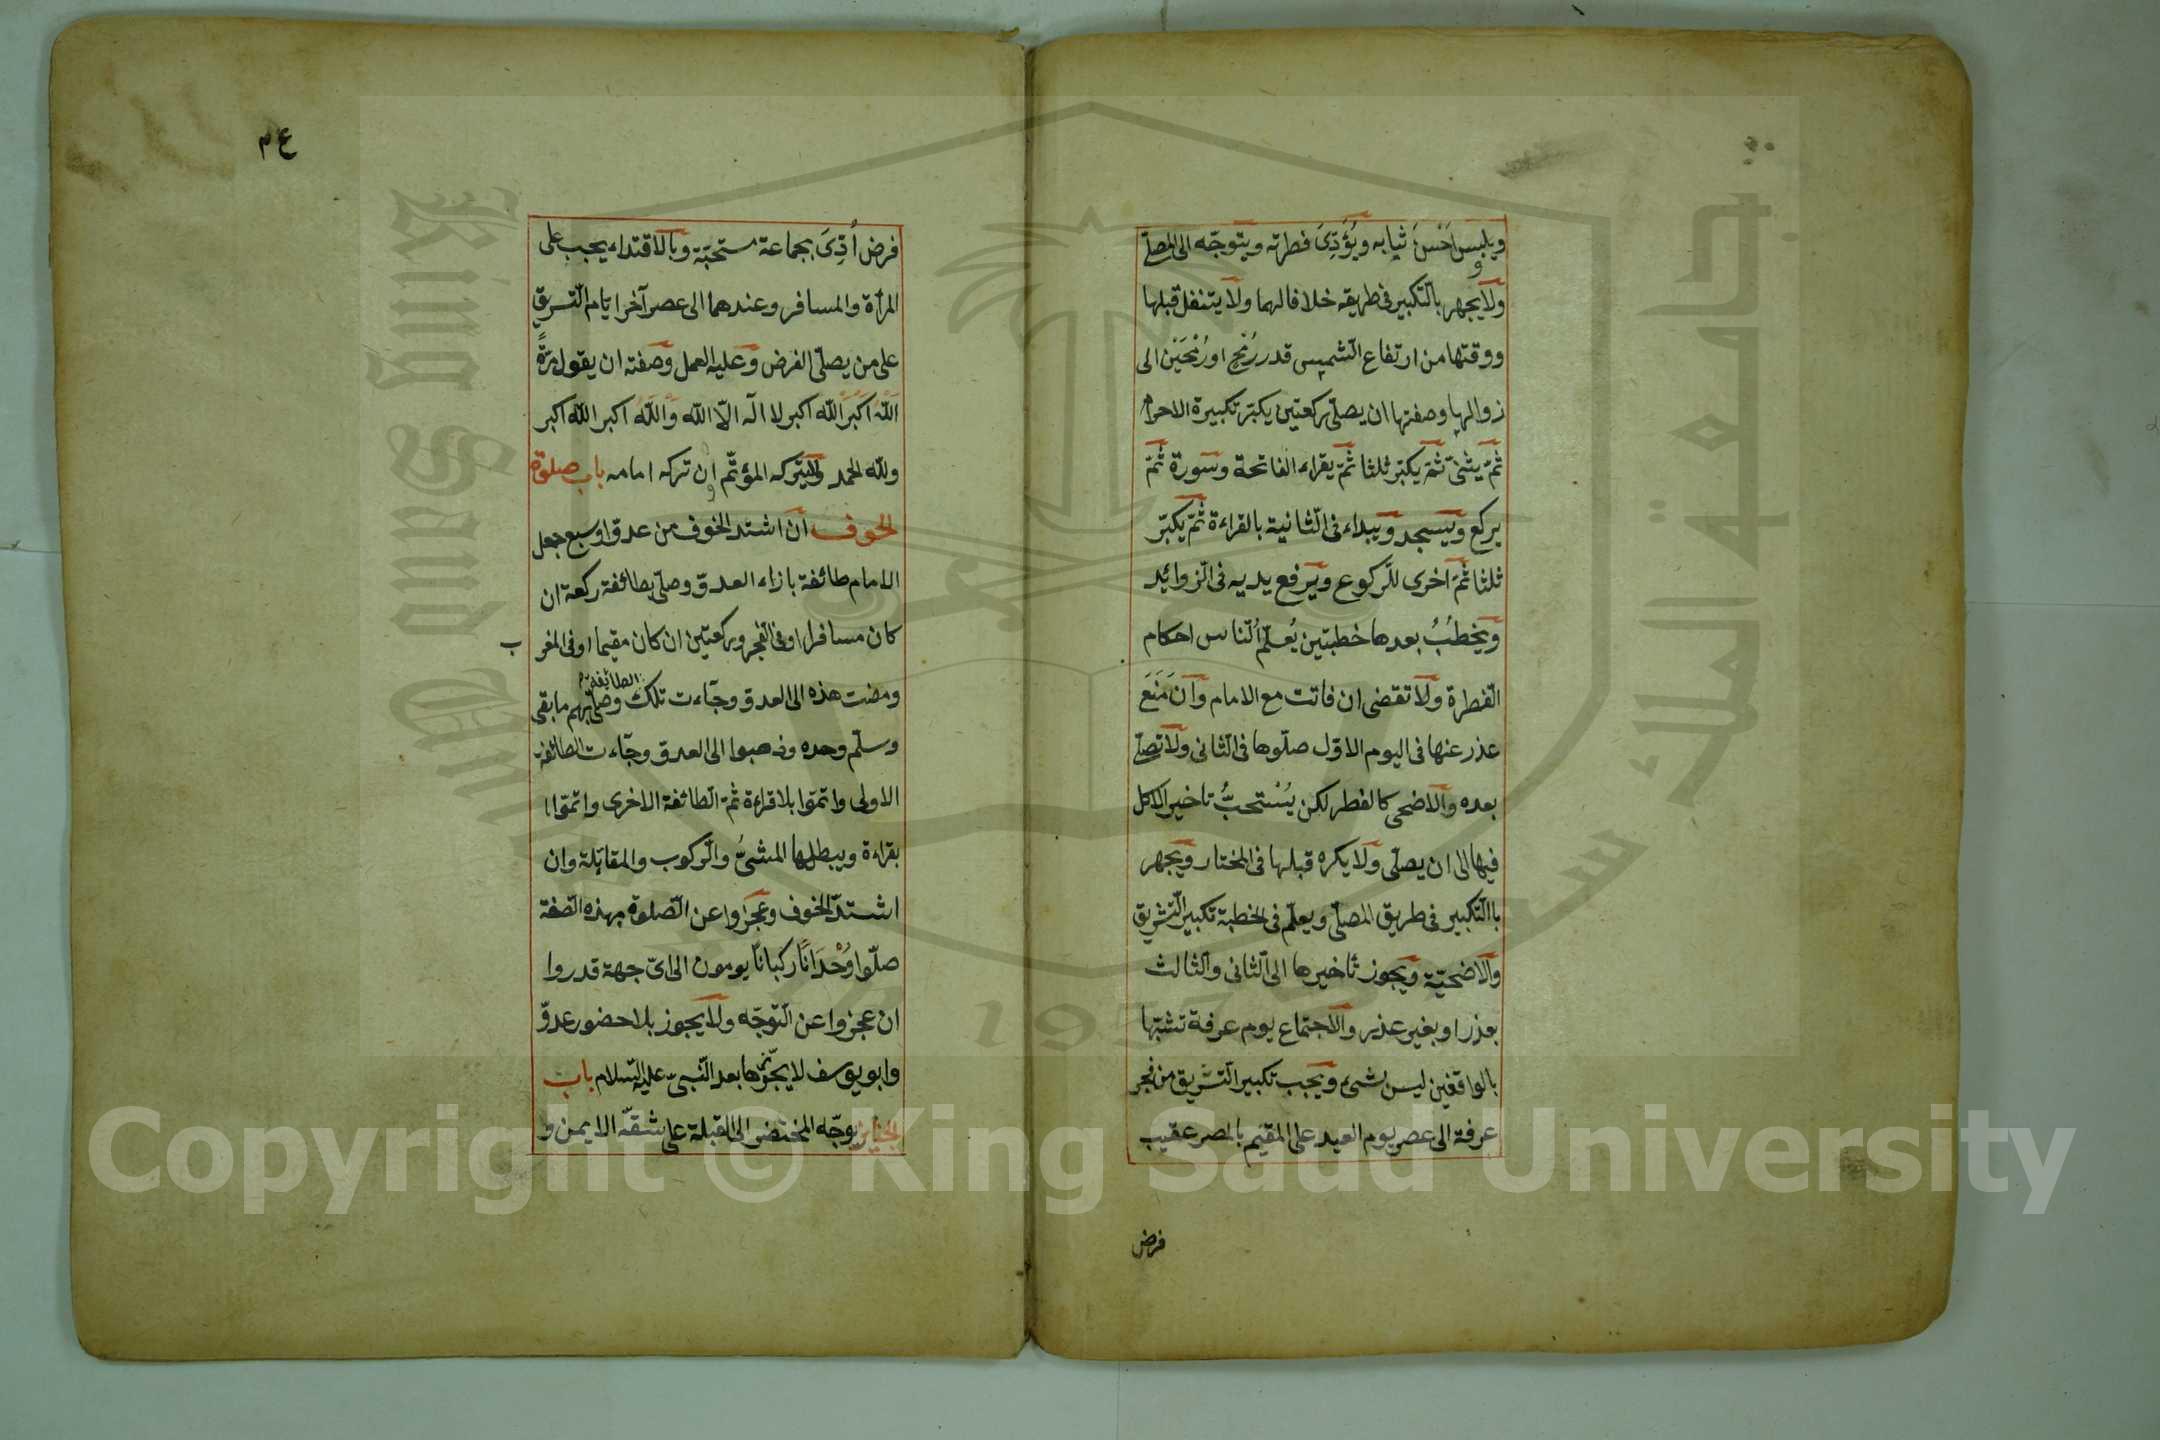 ويلبس اَحْسَنَ ثيابه ويُؤَدِّىَ فطرته ويتوجّه الى المصلّى
ولا يجهر بالتّكبير فى طريقه خلافا لهما ولا يتنفل قبلها
ووقتها من ارتفاع الشّمس قدر رُمْحٍ او رُمْحَيْن الى
زوالها وصفتها ان يصلّى ركعتين يكبّر تكبيرة الاحرام
ثمّ يثنىّ ثمّ يكبّر ثلثا ثمّ يقراء الفاتحة وسورة ثمّ
يركع ويسجد ويبداء فى الثّانية بالقراءة ثمّ يكبّر
ثلثا ثمّ اخرى للرّكوع ويرفع يديه فى الزّوائد
ويخطُبُ بعدها خطبتين يُعلّمُ النّاس احكام
الفطرة ولا تقضى ان فاتت مع الامام وان مَنَعَ
عذر عنها فى اليوم الاوّل صلّوها فى الثّانى ولا تصلّى
بعده والاضحى كالفطر لكن يُسْتحبُّ تاخير الاكل
فيها الى ان يصلّى ولا يكره قبلها فى المختار ويجهر
باالتّكبير فى طريق المصلّى ويعلّم فى الخطبة تكبير التّشريق
والاضحيّة ويجوز تاخيرها الى الثّانى والثّالث
بعذر او بغير عذر والاجتماع يوم عرفة تشبّها
بالواقفين ليس بشىء ويجب تكبير التّشريق من فجر
عرفة الى عصر يوم العيد على المقيم بالمصر عقيب
فرض
ع م
فرض اُدِّىَ بجماعة مستحبّة وبالاقتداء يجب على
المرأة والمسافر وعندهما الى عصر آخر ايّام التّشريق
على من يصلّى الفرض وعليه العمل وصفته ان يقول مرّةً
اَللّٰهُ اكبرُ اللّه اكبر لا اله الّا اللّه وَاللّهُ اكبر اللّه اكبر
وللّه الحمد ولا يتركه المؤتمّ وان تركه امامه باب صلوة
الخوف ان اشتد الخوف من عدوّ او سبع جعل
الامام طائفة بازاء العدوّ وصلّى بطائفة ركعة ان
كان مسافرا او فى الفجر وركعتين ان كان مقيما او فى المغر
ب
ومضت هذه الى العدوّ وجاءت تلك الطائفة وصلّى بهم ما بقى
وسلّم وحده وذهبوا الى العدوّ وجاءت الطائفة
الاولى واتمّوا بلا قراءة ثمّ الطائفة الاخرى واتمّوا
بقراءة ويبطلها المشىُّ والرّكوب والمقاتلة وان
اشتدّ الخوف وعجزوا عن الصّلوة بهذه الصّفة
صلّوا وُحْدَانًا ركبانًا يومون الى اىّ جهة قدروا
ان عجزوا عن التّوجّه ولا يجوز بلا حضور عدوّ
وابو يوسف لا يجوّزها بعد النّبىّ عليه السّلام باب
الجنائز يوجّه المحتضر الى القبلة على شقّه الايمن و
Copyright © King Saud University
King Saud University
جامعة الملك سعود
1957